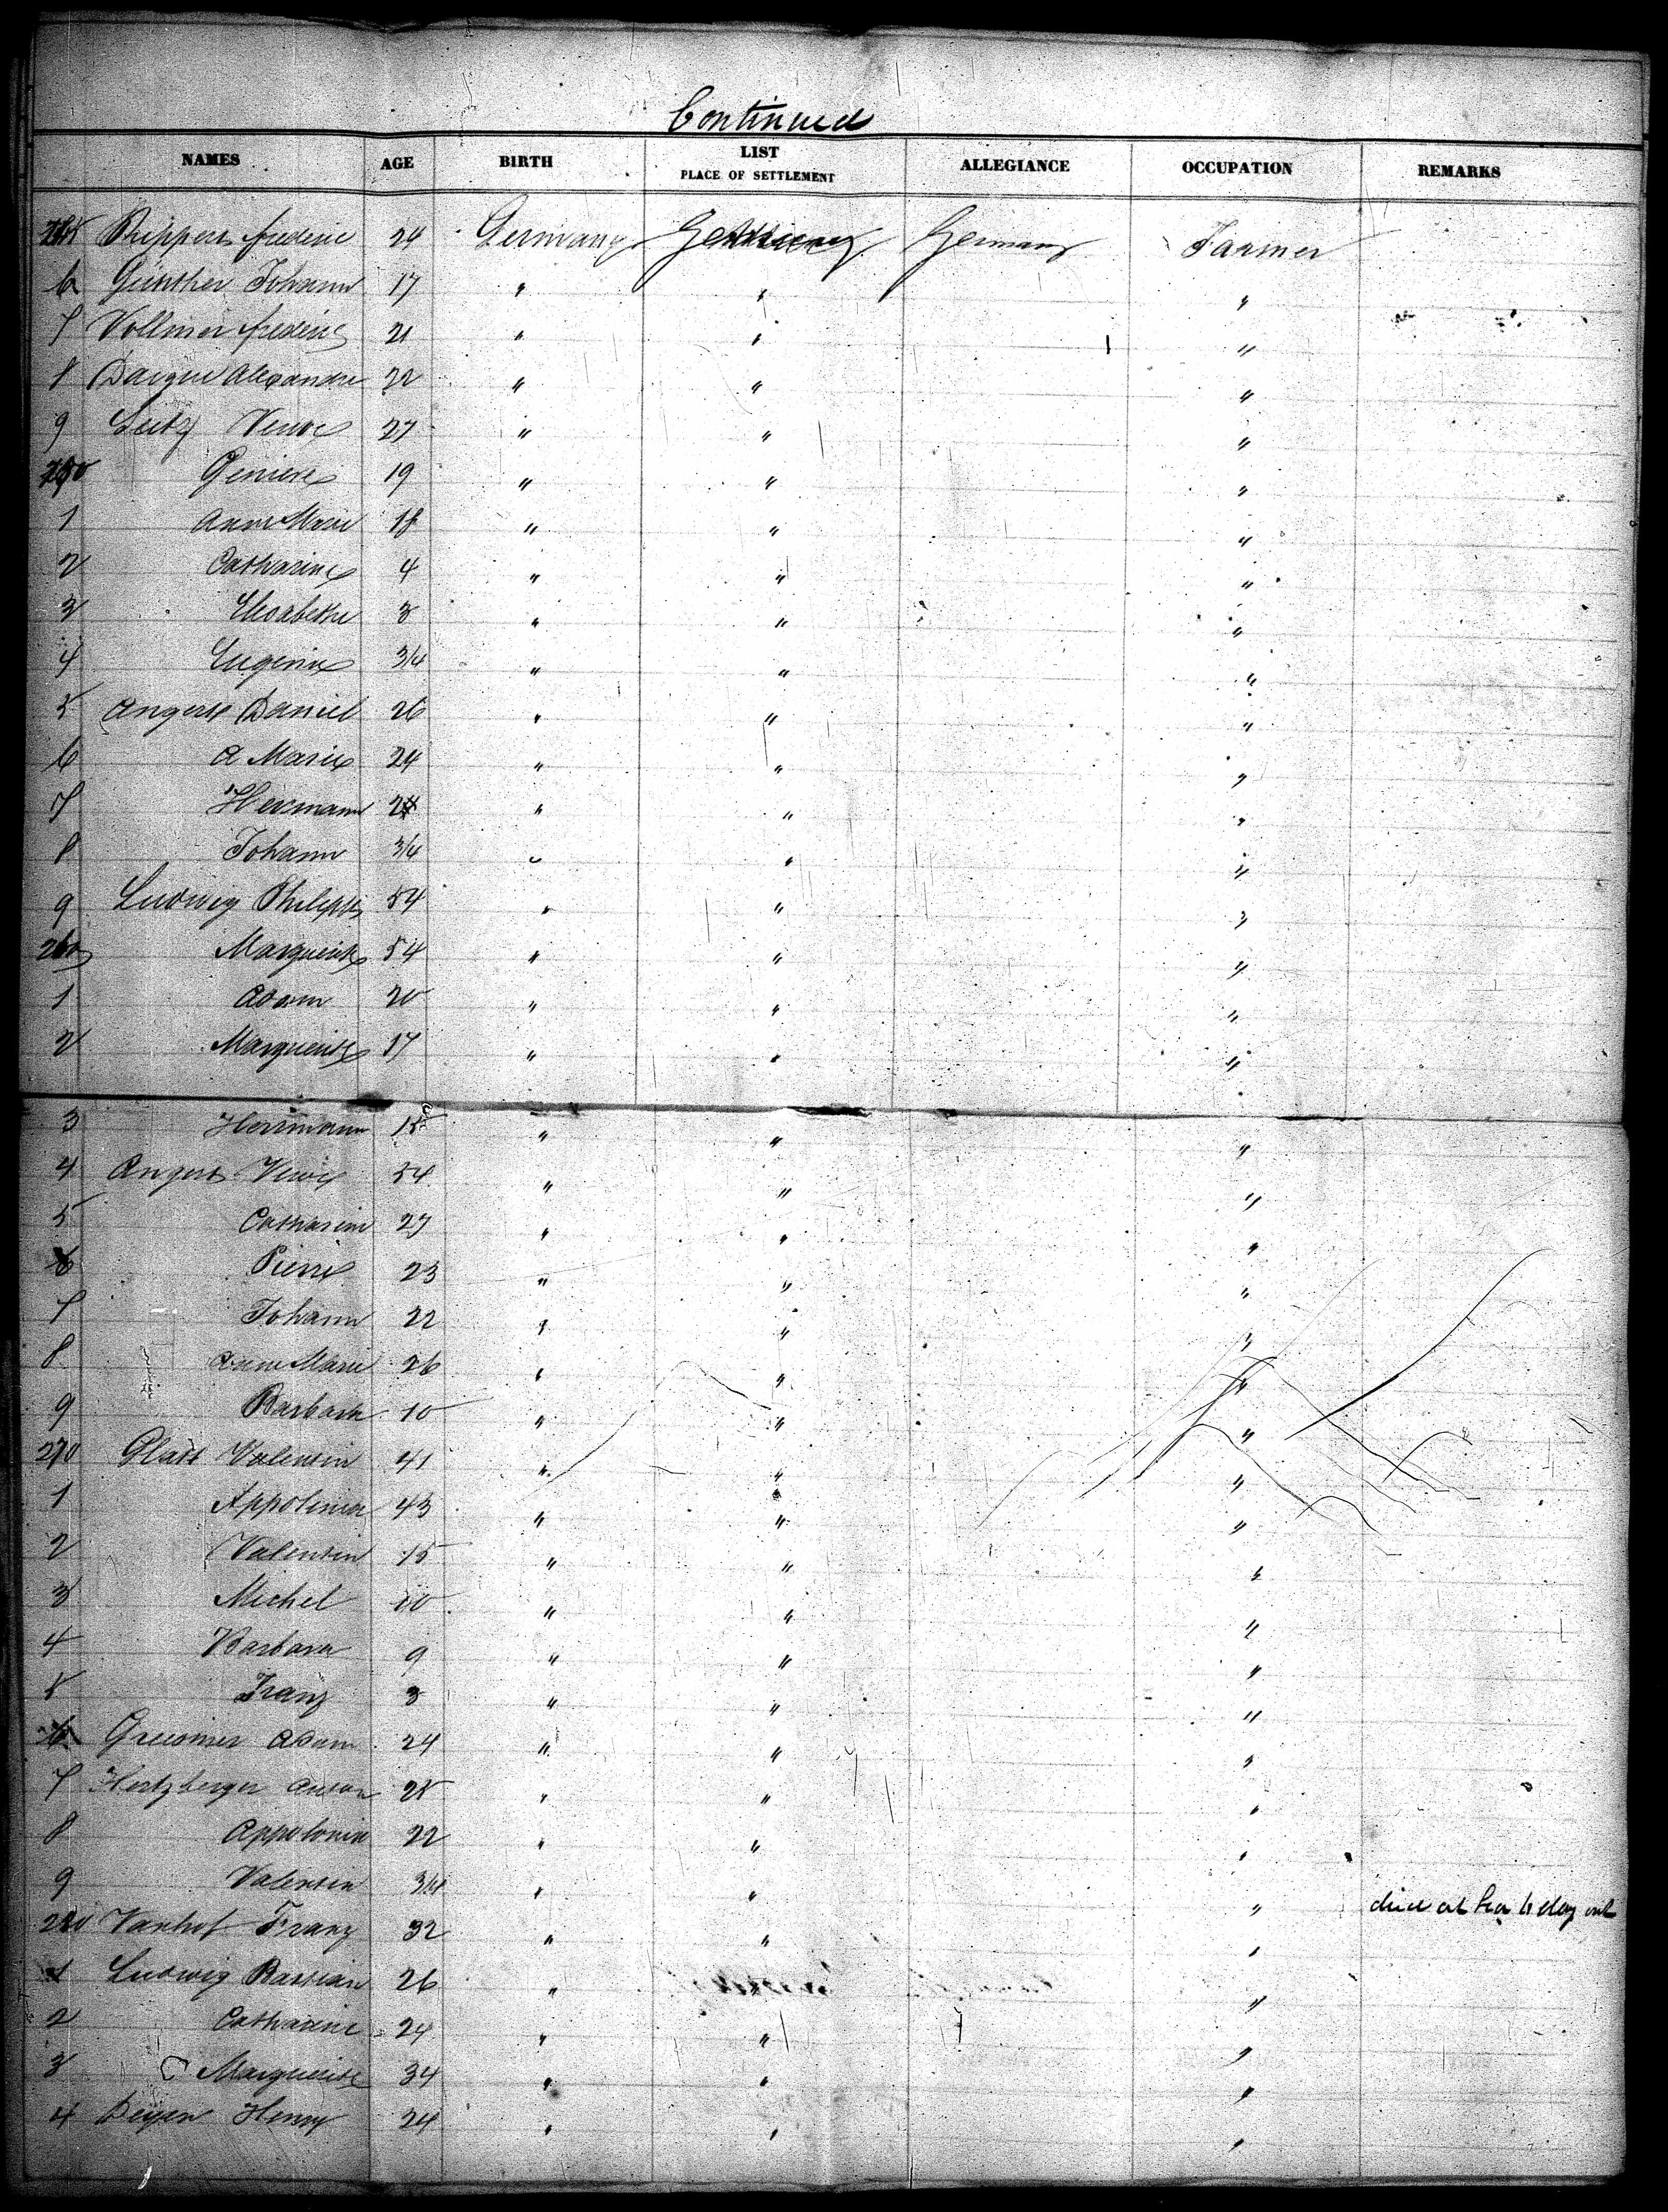 Continued
NAMES AGE BIRTH LIST PLACE OF SETTLEMENT ALLEGIANCE OCCUPATION REMARKS
245 frederic 24 Germany Germany Farmer
6 Günther Johann 17 " " "
7 Vollmer frederic 21 " " "
8 Alexandre 22 " " "
9 Veuve 27 " " "
250 19 " " "
1 Anne Marie 18 " " "
2 Catharine 4 " " "
3 3 " " "
4 Eugenie 3/4 " " "
5 Daniel 26 " " "
6 A Marie 24 " " "
7 Hermann " " "
8 Johann 3/4 " " "
9 Ludwig 54 " " "
260 Marguerite 54 " " "
1 Adam 20 " " "
2 Marguerite 17 " " "
3 Herrmann 15 " " "
4 Angert 54 " " "
5 Catharine 27 " " "
6 Pierre 23 " " "
7 Johann 22 " " "
8 Anne Marie 26 " " "
9 Barbara 10 " " "
270 Glatt Valentin 41 " " "
1 Appolonia 43 " " "
2 Valentin 15 " " "
3 Michel 10 " " "
4 Barbara 9 " " "
5 Franz 3 " " "
6 Adam 24 " " "
7 Hertzberger 28 " " "
8 Appolonia 22 " " "
9 Valentin 3/4 " " " died at Sea day out
280 Vanhof Franz 32 " " "
1 Ludwig 26 " "
2 Catharine 24 " " "
3 Marguerite 34 " " "
4 Henry 24 " " "